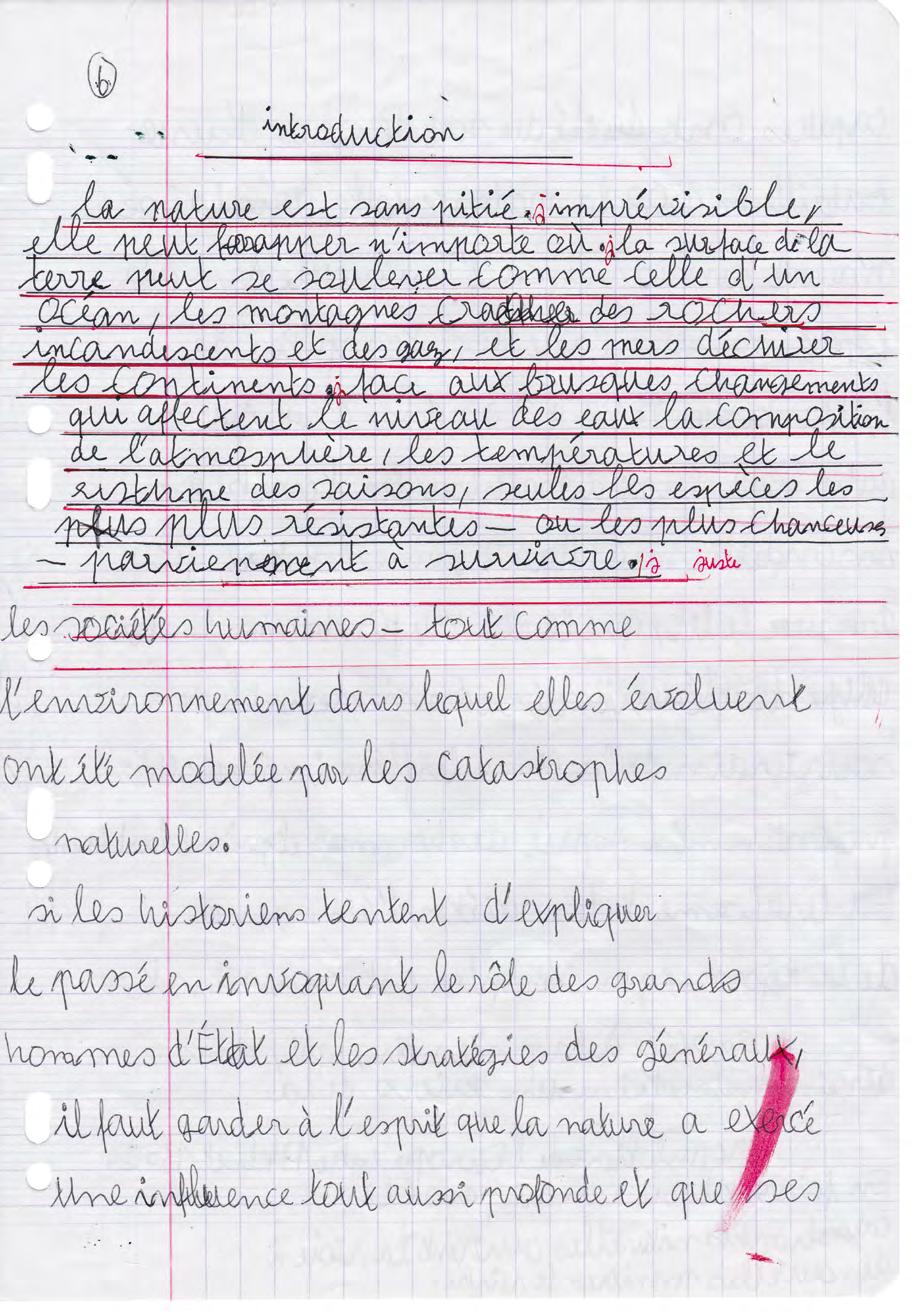 6
introduction
la nature est sans pitié. imprévisible,
elle peut frapper n'importe où. la surface de la
terre peut se soulever comme celle d'un
océan, les montagnes cracher des rochers
incandescents et des gaz, et les mers déchirer
les continents. face aux brusques changements
qui affectent le niveau des eaux la composition
de l'atmosphère, les températures et le
des saisons, seules les espèces les
plus plus résistantes – ou les plus chanceuses
– parviennent à survivre. juste
les sociétés humaines – tout comme
l'environnement dans lequel elles évoluent
ont été modelée par les catastrophes
naturelles.
si les historiens tentent d'expliquer
le passé en invoquant le rôle des grands
hommes d'État et les stratégies des généraux,
il faut garder à l'esprit que la nature a exercé
une influence tout aussi profonde et que ses